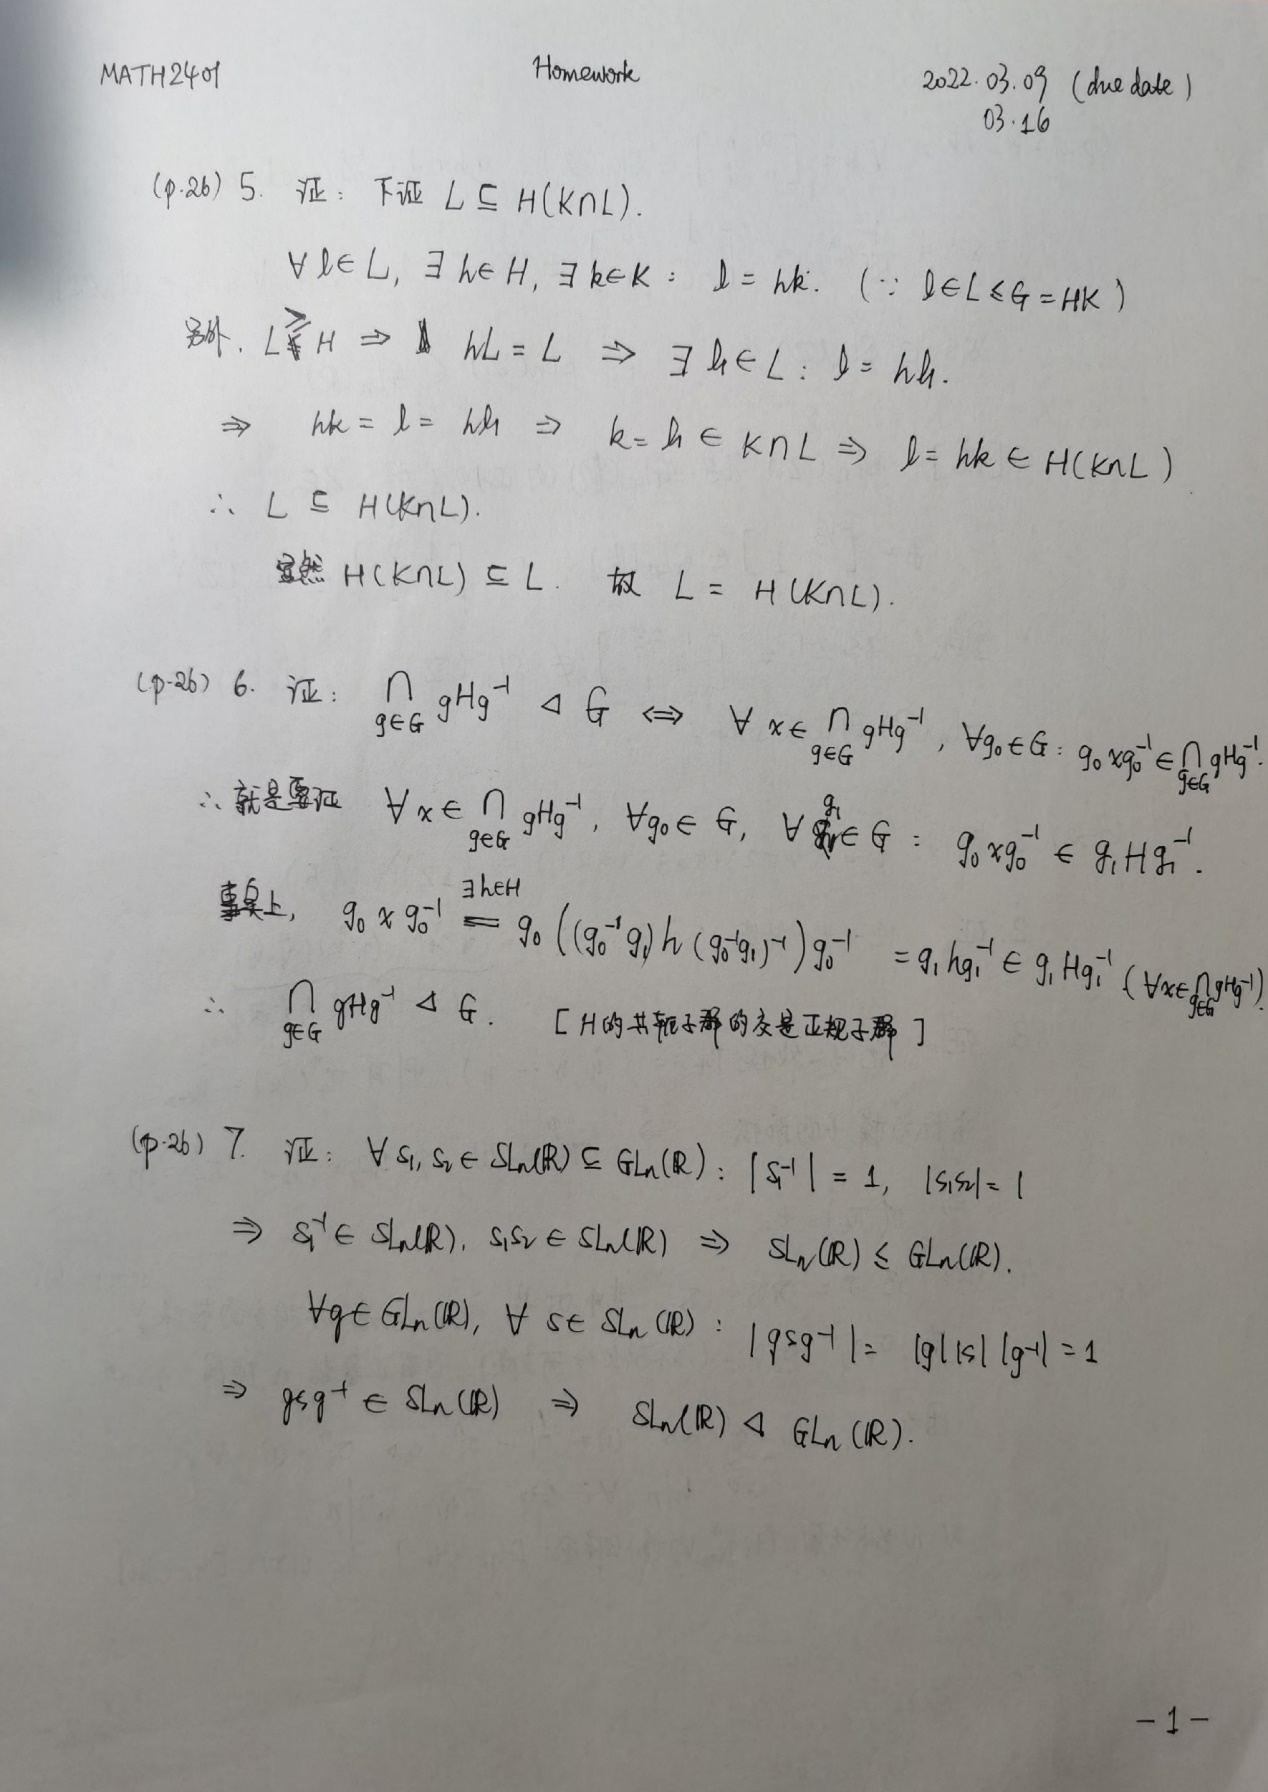 MATH2401 Homework 2022.03.09 (due date)
03.16
(p.26) 5. 证: 下证 L ⊆ H(K∩L).
∀ l∈L, ∃ h∈H, ∃ k∈K : l = hk. (∵ l∈L ≤ G = HK)
另外, L ≥ H ⇒ hL = L ⇒ ∃ l₁ ∈ L : l = hl₁.
⇒ hk = l = hl₁ ⇒ k = l₁ ∈ K∩L ⇒ l = hk ∈ H(K∩L)
∴ L ⊆ H(K∩L).
显然 H(K∩L) ⊆ L. 故 L = H(K∩L).
(p.26) 6. 证: ∩_{g∈G} gHg⁻¹ ◁ G ⇔ ∀ x∈ ∩_{g∈G} gHg⁻¹, ∀g₀∈G : g₀xg₀⁻¹ ∈ ∩_{g∈G} gHg⁻¹.
∴ 就是要证 ∀ x ∈ ∩_{g∈G} gHg⁻¹, ∀g₀ ∈ G, ∀ g₁ ∈ G : g₀xg₀⁻¹ ∈ g₁Hg₁⁻¹.
事实上, g₀ x g₀⁻¹ =^{∃h∈H} g₀((g₀⁻¹g₁)h(g₀⁻¹g₁)⁻¹)g₀⁻¹ = g₁hg₁⁻¹ ∈ g₁Hg₁⁻¹ (∀x∈∩_{g∈G} gHg⁻¹).
∴ ∩_{g∈G} gHg⁻¹ ◁ G. [H的共轭子群的交是正规子群]
(p.26) 7. 证: ∀ s₁, s₂ ∈ SLn(ℝ) ⊆ GLn(ℝ) : |s₁⁻¹| = 1, |s₁s₂| = 1
⇒ s₁⁻¹ ∈ SLn(ℝ), s₁s₂ ∈ SLn(ℝ) ⇒ SLn(ℝ) ≤ GLn(ℝ).
∀g∈GLn(ℝ), ∀ s∈ SLn(ℝ) : |gsg⁻¹| = |g||s||g⁻¹| = 1
⇒ gsg⁻¹ ∈ SLn(ℝ) ⇒ SLn(ℝ) ◁ GLn(ℝ).
-1-